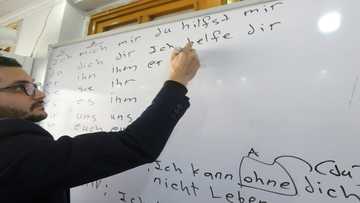 mich mir du hilfst mir
dich dir Ich helfe dir
ihn ihm er
ihr
es ihm
uns uns
euch eu
A
Ich kann ohne dich (du
nicht Leben
Ich